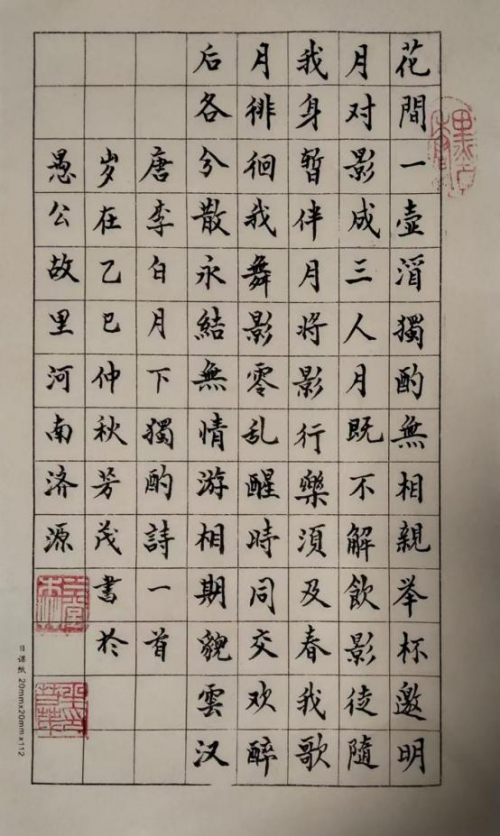 花間一壺酒獨酌無相親举杯邀明
月对影成三人月既不解飲影徒隨
我身暫伴月將影行樂須及春我歌
月徘徊我舞影零乱醒時同交欢醉
后各分散永結無情游相期邈雲汉
唐李白月下獨酌詩一首
岁在乙巳仲秋芳茂書於
愚公故里河南济源
日课纸 20mm×20mm×112